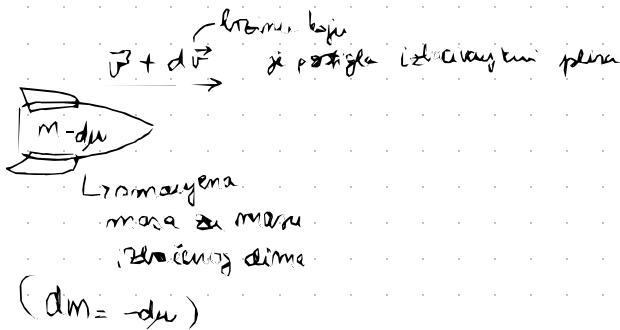 brzina koju
v⃗ + dv⃗ je postigla izbacivanjem plina
m - dμ
↳ smanjena
masa za masu
izbačenog dima
(dm = -dμ)